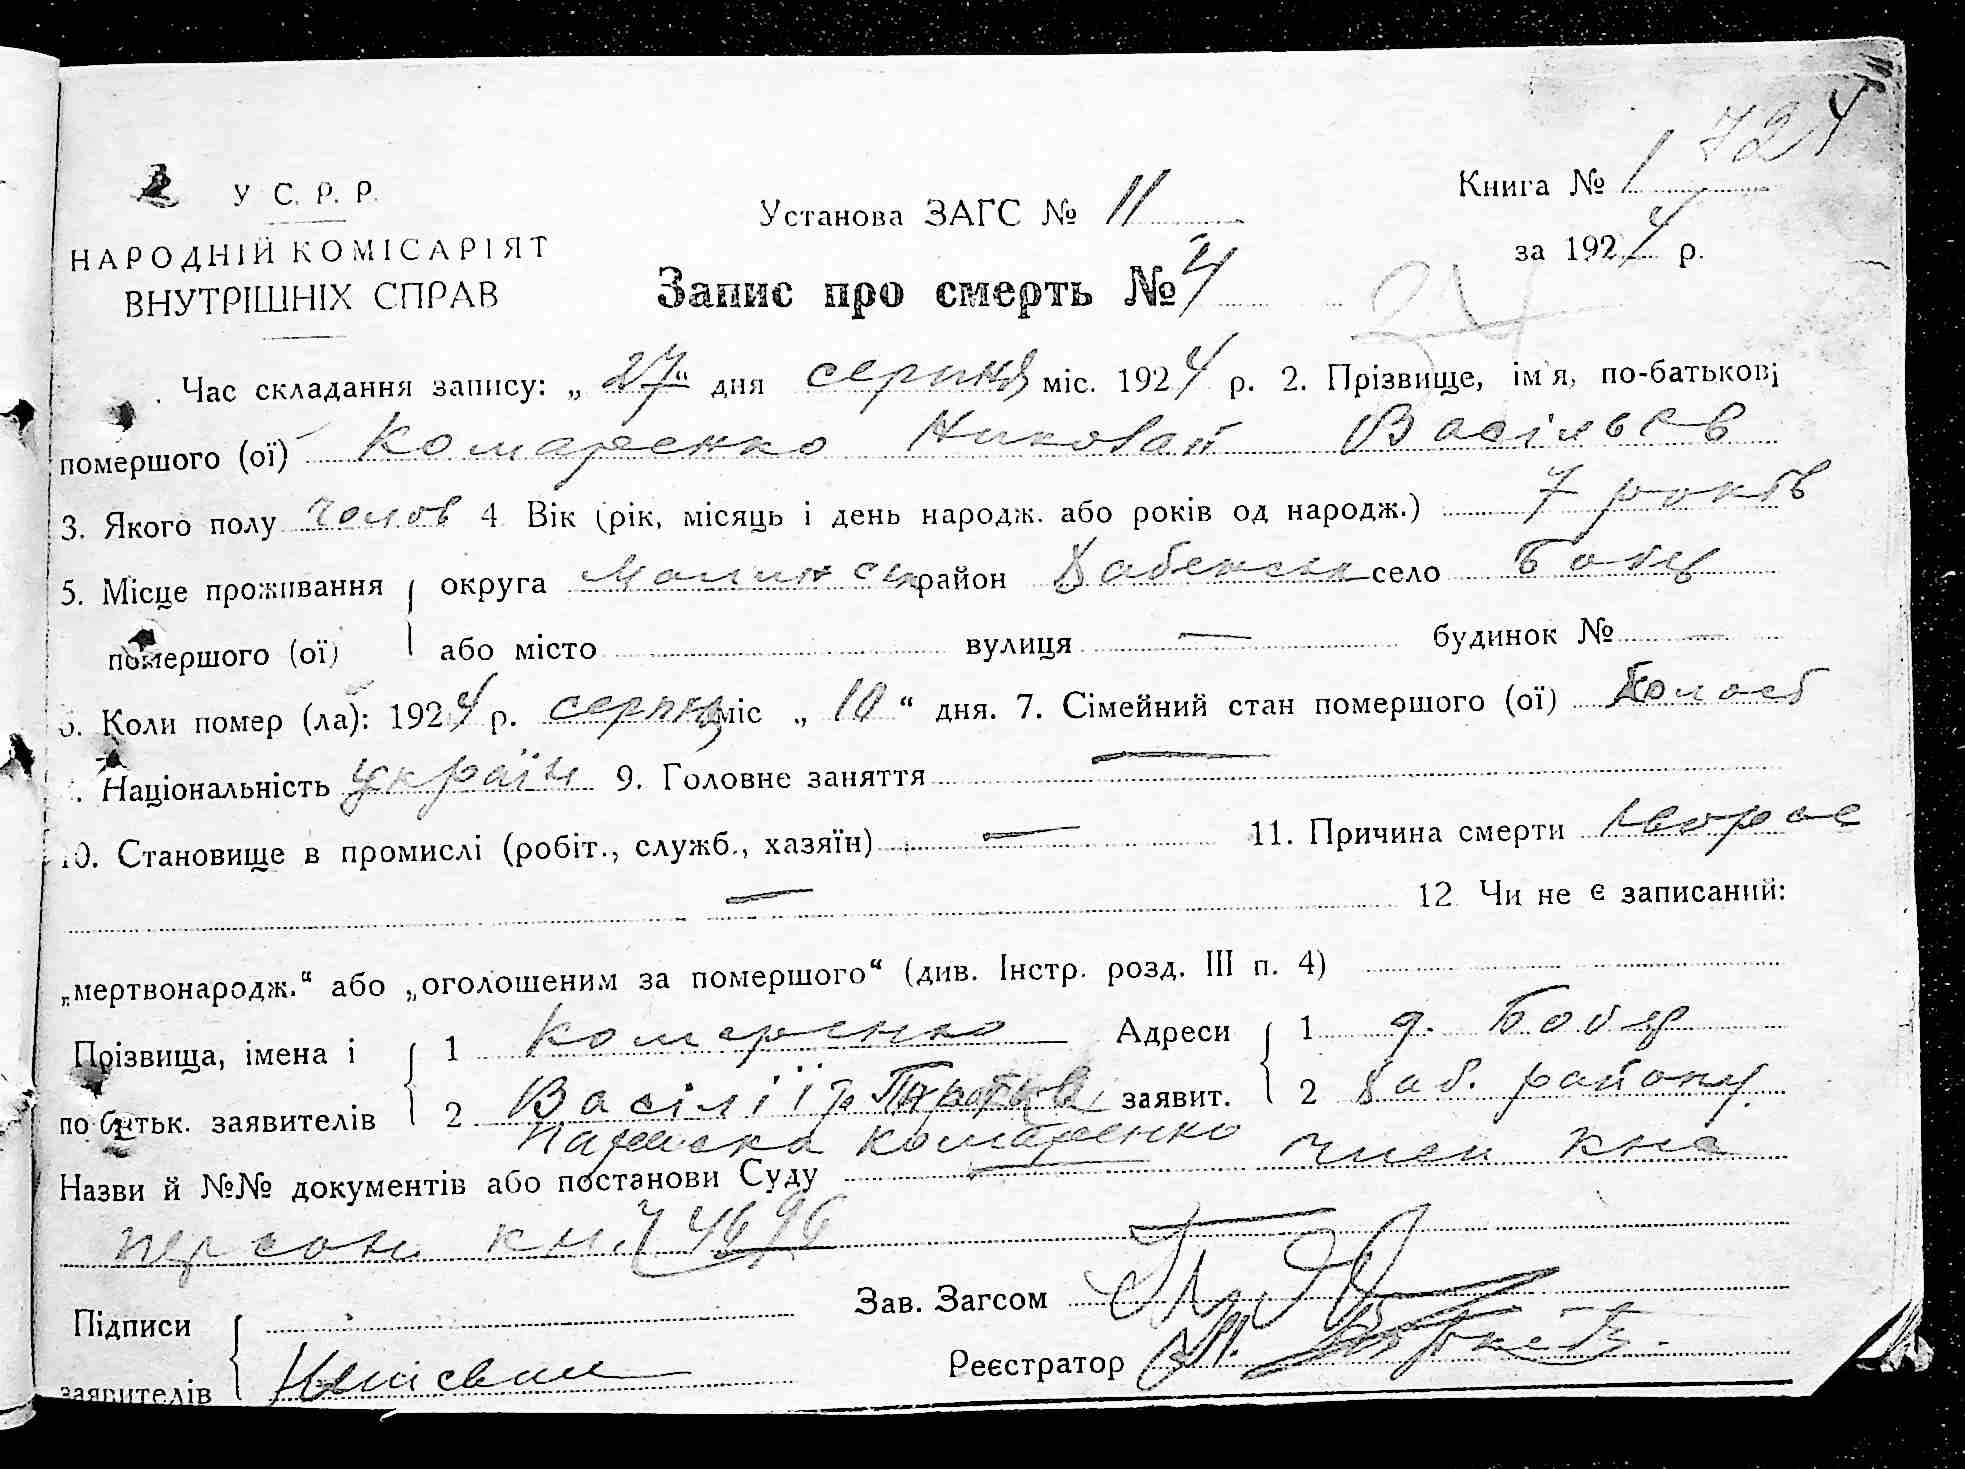 724
У С. Р. Р.
НАРОДНІЙ КОМІСАРІЯТ
ВНУТРІШНІХ СПРАВ
Установа ЗАГС № 11
Книга № 1
за 1924 р.
Запис про смерть № 4
24
Час складання запису: „27“ дня серпня міс. 1924 р. 2. Прізвище, імя, по-батькові
помершого (ої) Комаренко Николай Васільев
3. Якого полу чолов 4 Вік (рік, місяць і день народж. або років од народж.) 7 років
5. Місце проживання округа Малинськ район село
помершого (ої) або місто вулиця — будинок № —
Коли помер (ла): 1924 р. серпня міс „10“ дня. 7. Сімейний стан помершого (ої) Холост
Національність україн 9. Головне заняття —
10. Становище в промислі (робіт., служб., хазяїн) — 11. Причина смерти
— 12 Чи не є записаний:
„мертвонародж.“ або „оголошеним за помершого“ (див. Інстр. розд. III п. 4)
Прізвища, імена і 1 Комаренко Адреси 1 д.
по батьк. заявителів 2 Васілії заявит. 2 району
Параска Комаренко
Назви й №№ документів або постанови Суду
персон. кн. 4696
Підписи
заявителів
Зав. Загсом
Реєстратор